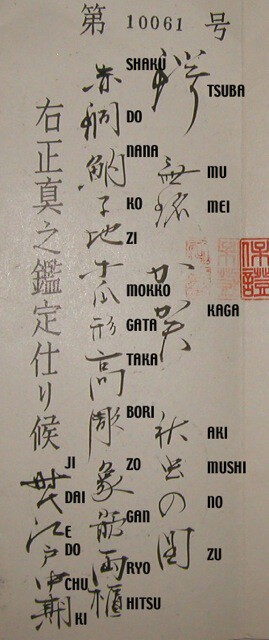 第 10061 号
鍔 無銘 加賀 秋虫の図
TSUBA
MU
MEI
KAGA
AKI
MUSHI
NO
ZU
赤銅魚子地木瓜形高彫象嵌両櫃
SHAKU
DO
NANA
KO
ZI
MOKKO
GATA
TAKA
BORI
ZO
GAN
RYO
HITSU
右正真之鑑定仕り候
時代江戸中期
JI
DAI
E
DO
CHU
KI
保證